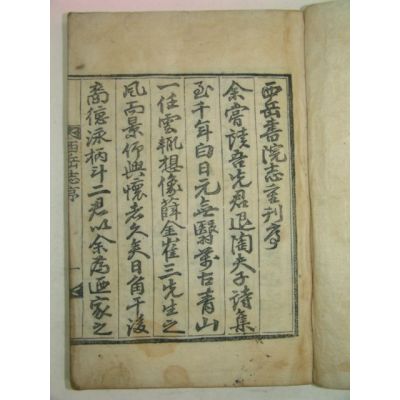 西岳書院志重刊序
余嘗讀吾先君退陶夫子詩集
至千年白日元無翳萬古青山
一任雲輒想像薛金崔三先生之
風而景仰興懷者久矣日角干後
裔德泳柄斗二君以余為家之
西岳志序
一